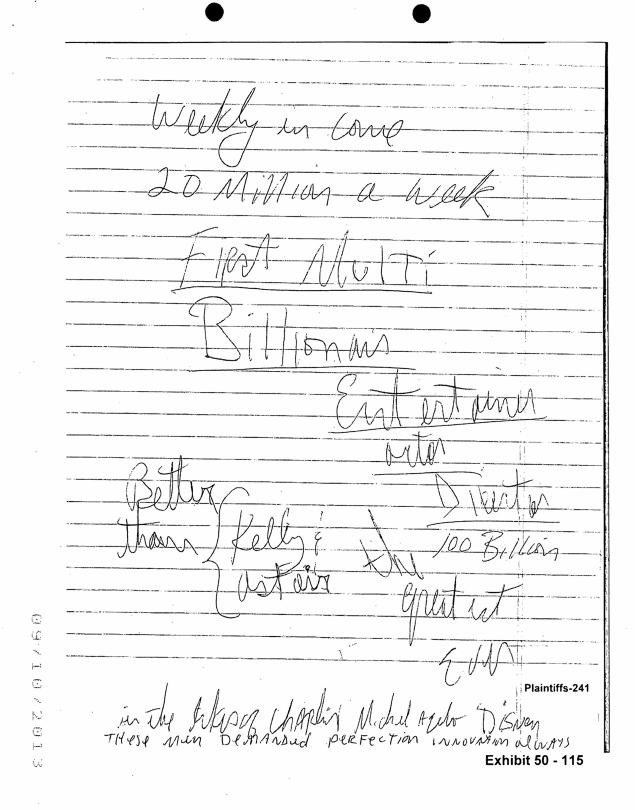 Weekly in come
20 Million a week
First Multi
Billionair
Entertainer
actor
Director
Better
than { Kelly &
astair
100 Billion
the
greatest
Ever
Plaintiffs-241
in the Chaplin Michel Angelo Disney
THese men Demanded perfection innovation always
Exhibit 50 - 115
09/10/2013